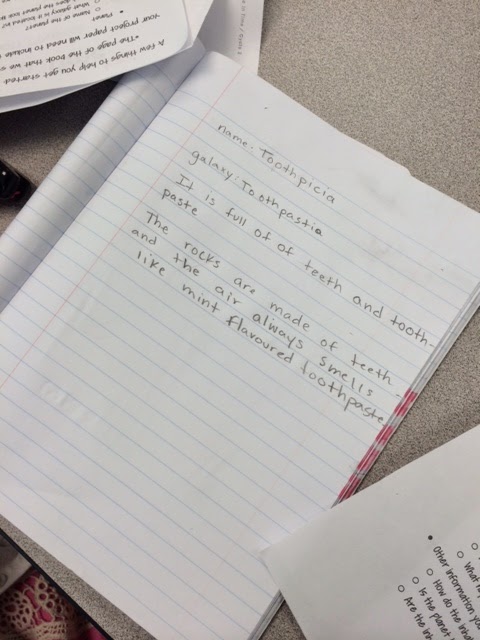 name: Toothpicia
galaxy: Toothpastia
It is full of of teeth and tooth-
paste
The rocks are made of teeth
and the air always smells
like mint flavoured toothpaste
A few things to help you get started:
•The page of the book that we s
your project paper will need to include
Planet
Name of the planet?
What galaxy is it located in?
• Other information you
What
How do the inha
Is the planet
Are the